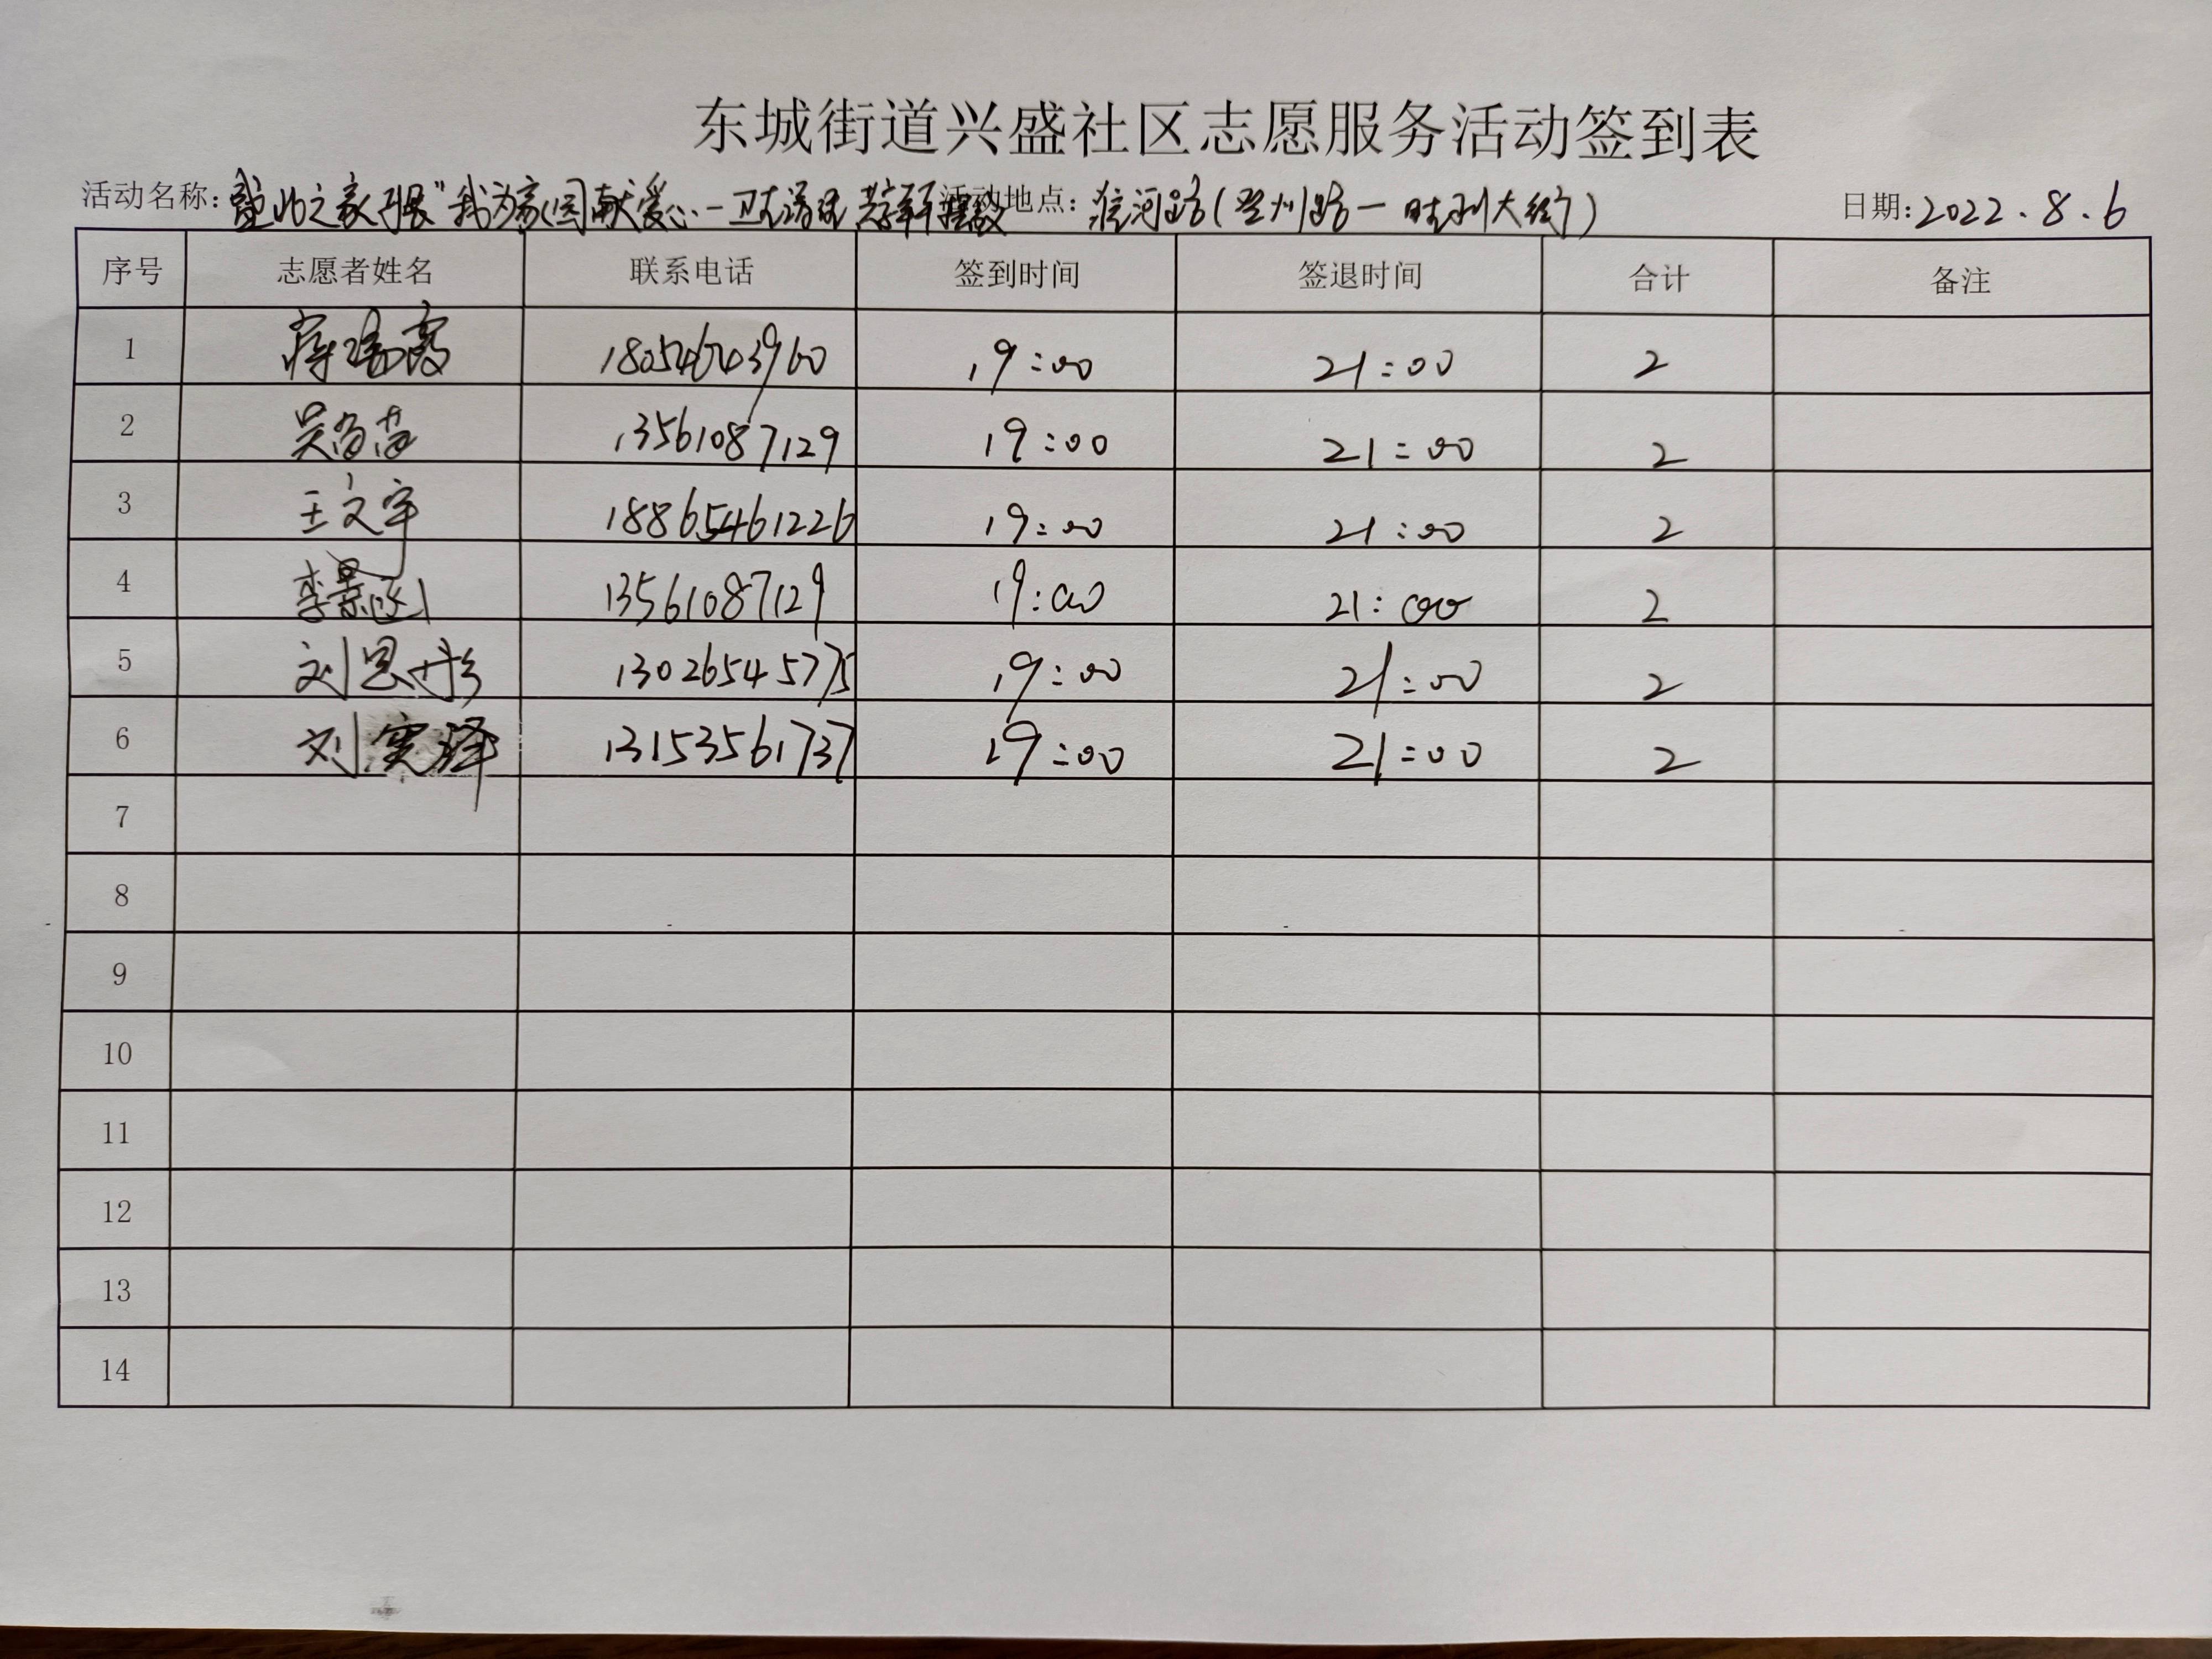 东城街道兴盛社区志愿服务活动签到表
活动名称: 之家开展"我为家园献爱心 活动地点: 淮河路(登州路一胜利大街) 日期: 2022.8.6
序号 志愿者姓名 联系电话 签到时间 签退时间 合计 备注
1 18054643960 19:00 21:00 2
2 13561087129 19:00 21:00 2
3 王文宇 18865461226 19:00 21:00 2
4 李景 13561087129 19:00 21:00 2
5 刘思彤 13026545775 19:00 21:00 2
6 刘奕泽 13153561737 19:00 21:00 2
7
8
9
10
11
12
13
14